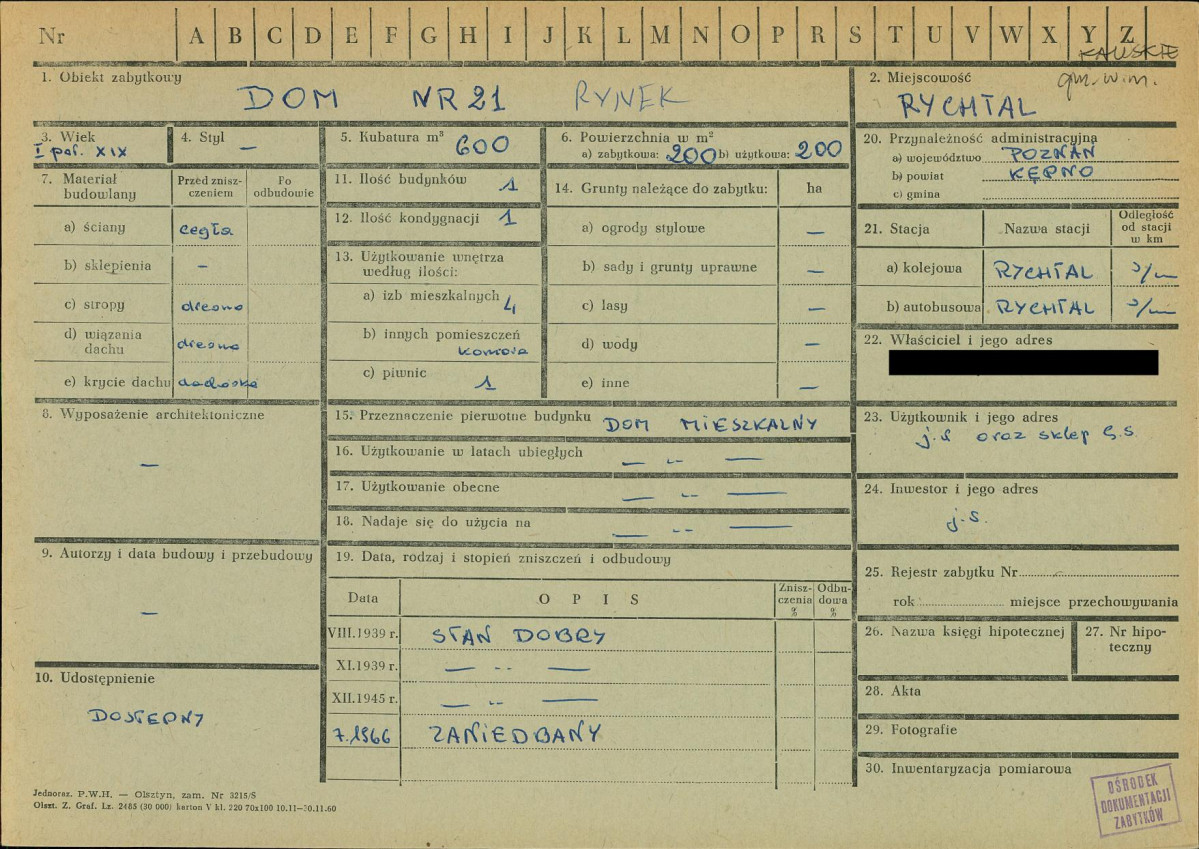 Nr A B C D E F G H I J K L M N O P R S T U V W X Y Z
KALISKIE
gm. w. m.
1. Obiekt zabytkowy
DOM NR 21 RYNEK
2. Miejscowość
RYCHTAL
3. Wiek
I poł. XIX
4. Styl
—
5. Kubatura m³ 600
6. Powierzchnia w m²
a) zabytkowa: 200 b) użytkowa: 200
7. Materiał budowlany
Przed zniszczeniem
Po odbudowie
a) ściany cegła
b) sklepienia —
c) stropy drewno
d) wiązania dachu drewno
e) krycie dachu dachówka
8. Wyposażenie architektoniczne
—
9. Autorzy i data budowy i przebudowy
—
10. Udostępnienie
DOSTĘPNY
11. Ilość budynków 1
12. Ilość kondygnacji 1
13. Użytkowanie wnętrza
według ilości:
a) izb mieszkalnych 4
b) innych pomieszczeń
komora
c) piwnic 1
14. Grunty należące do zabytku: ha
a) ogrody stylowe —
b) sady i grunty uprawne —
c) lasy —
d) wody —
e) inne —
15. Przeznaczenie pierwotne budynku DOM MIESZKALNY
16. Użytkowanie w latach ubiegłych — „ —
17. Użytkowanie obecne — „ —
18. Nadaje się do użycia na — „ —
19. Data, rodzaj i stopień zniszczeń i odbudowy
Data OPIS Zniszczenia % Odbudowa %
VIII.1939 r. STAN DOBRY
XI.1939 r. — „ —
XII.1945 r. — „ —
7.1966 ZANIEDBANY
20. Przynależność administracyjna
a) województwo POZNAŃ
b) powiat KĘPNO
c) gmina
21. Stacja Nazwa stacji Odległość od stacji w km
a) kolejowa RYCHTAL
b) autobusowa RYCHTAL
22. Właściciel i jego adres
23. Użytkownik i jego adres
j.w. oraz sklep G.S.
24. Inwestor i jego adres
j.w.
25. Rejestr zabytku Nr
rok miejsce przechowywania
26. Nazwa księgi hipotecznej
27. Nr hipoteczny
28. Akta
29. Fotografie
30. Inwentaryzacja pomiarowa
OŚRODEK
DOKUMENTACJI
ZABYTKÓW
Jednoraz. P.W.H. — Olsztyn, zam. Nr 3215/S
Olszt. Z. Graf. Lz. 2485 (30 000) karton V kl. 220 70x100 10.11—30.11.60